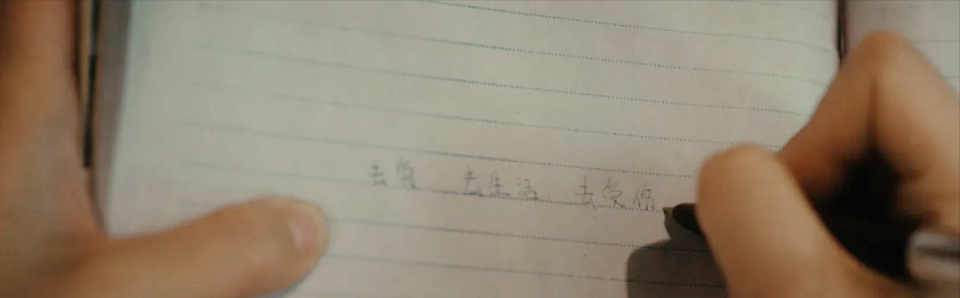 去爱 去生活 去受伤